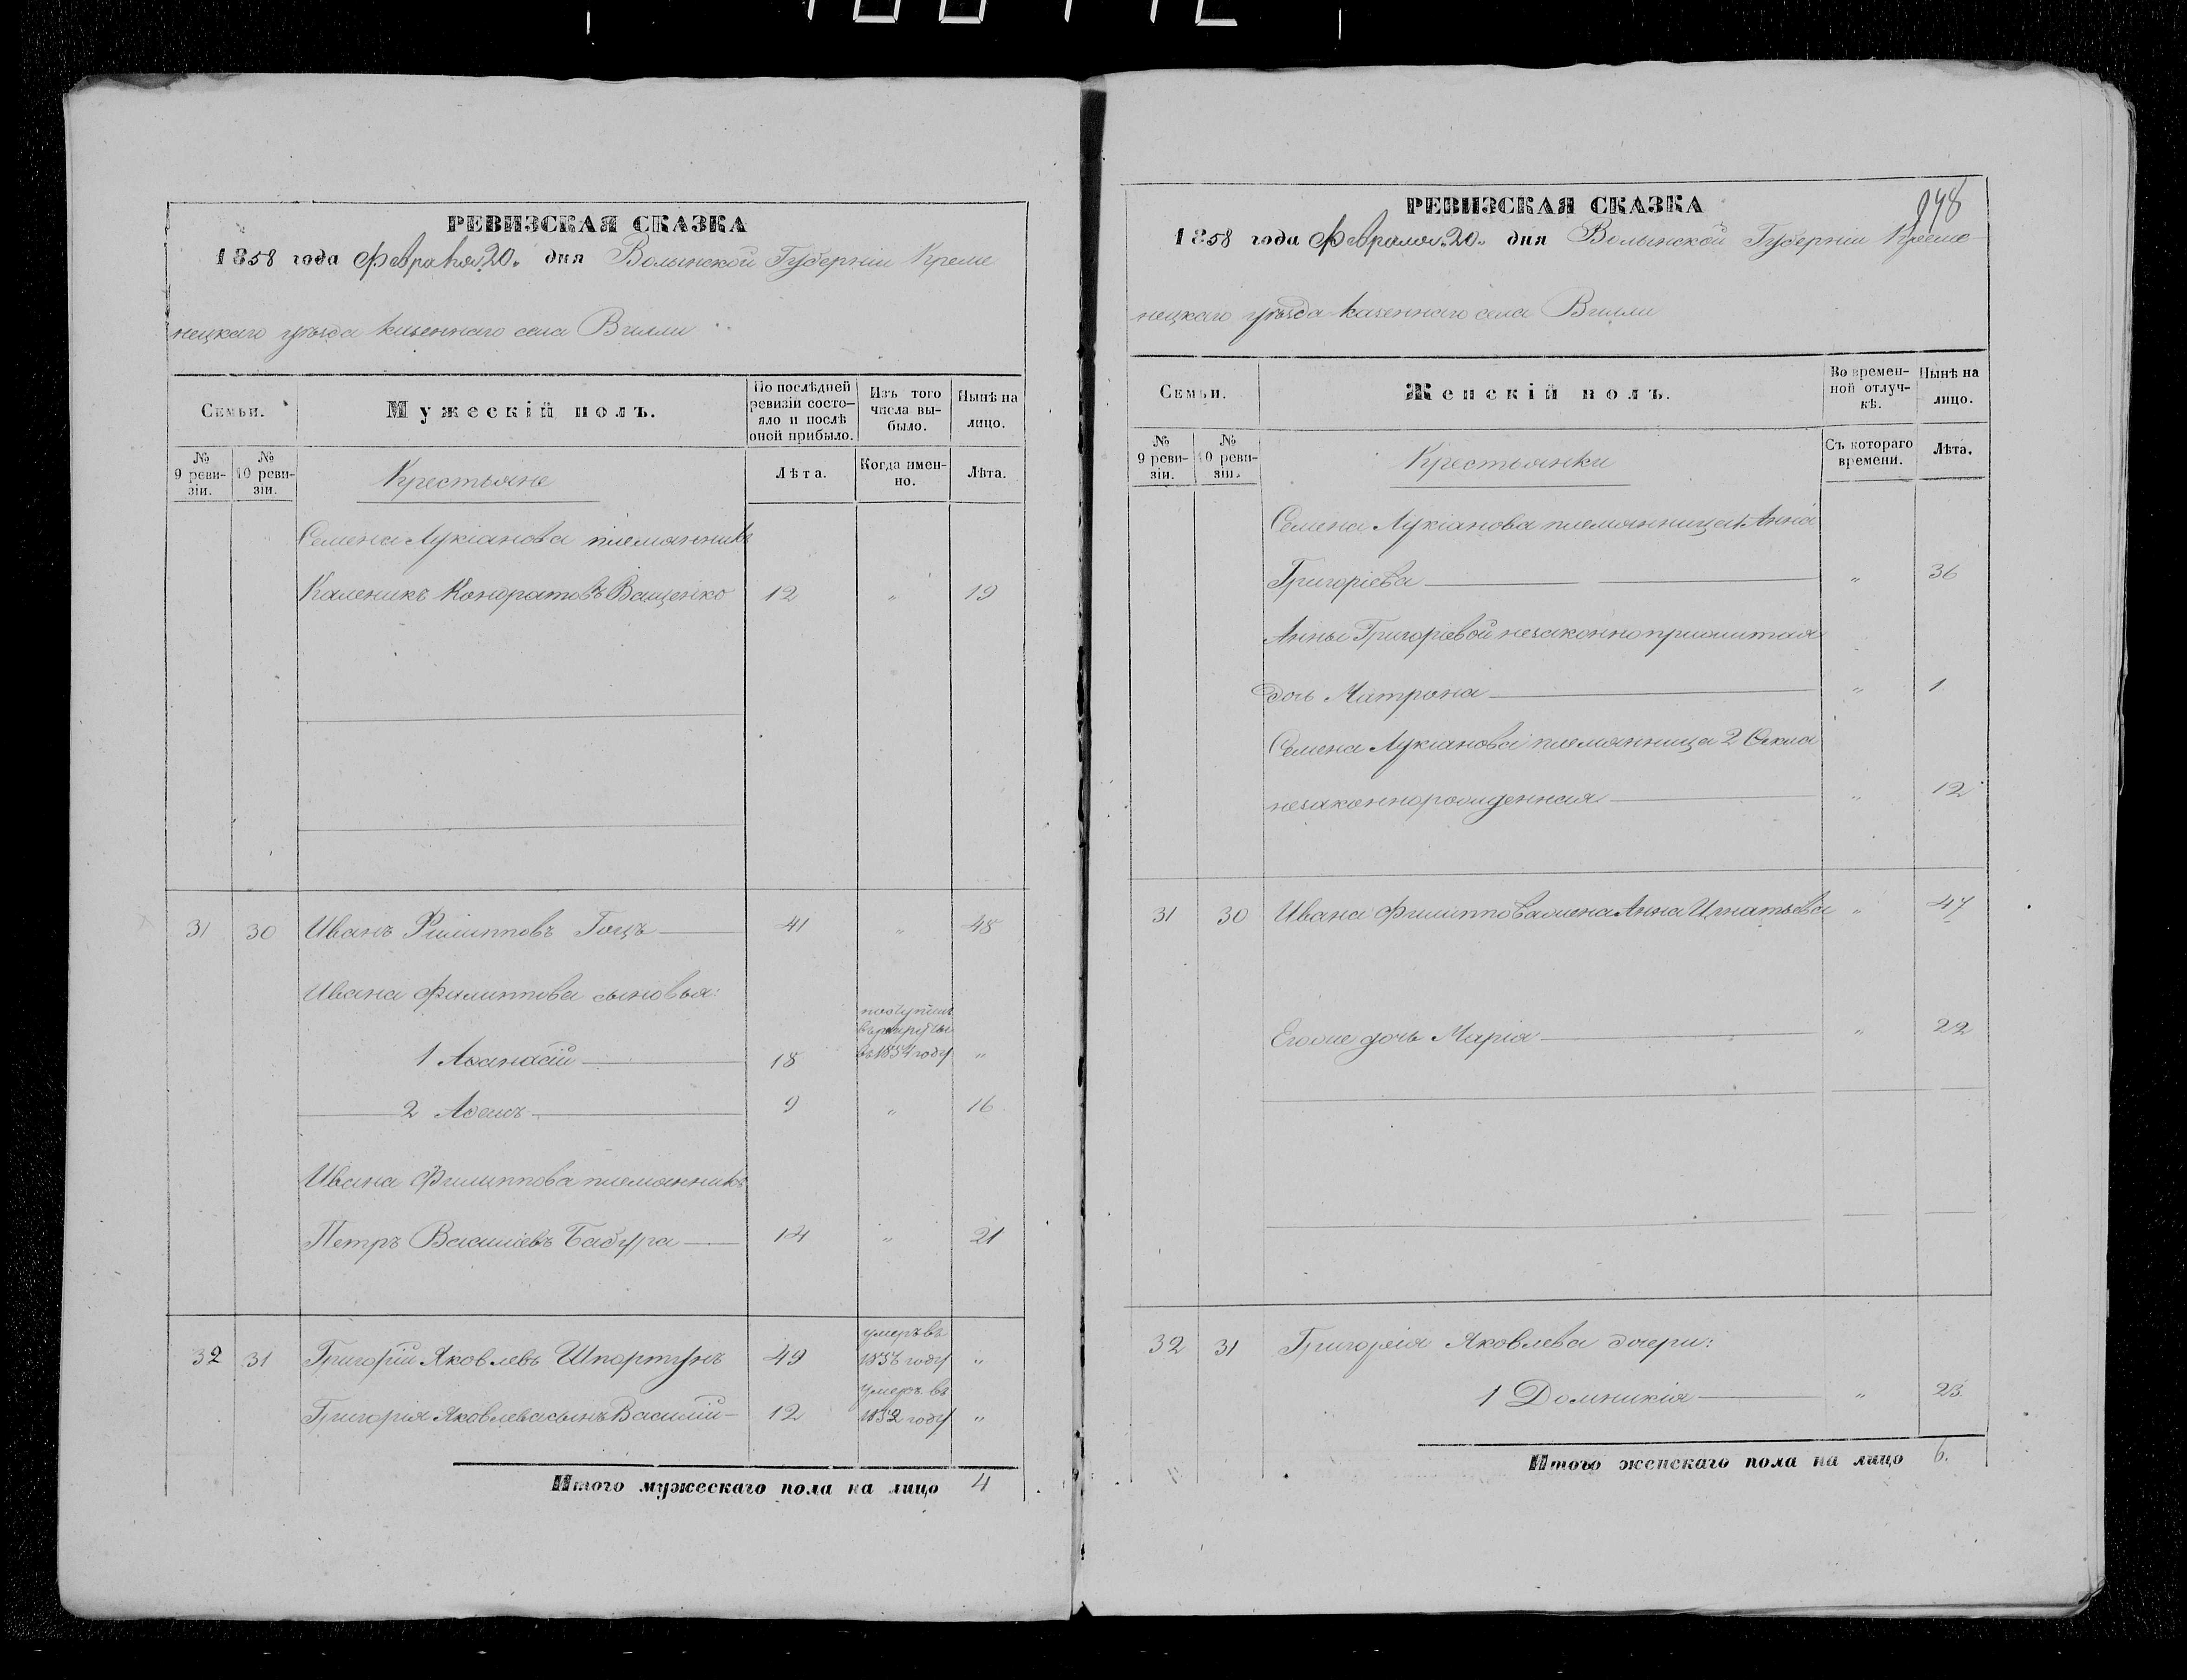 РЕВИЗСКАЯ СКАЗКА
1858 года Февраля „20„ дня Волынской Губерніи Креме
нецкаго уѣзда казеннаго села Вилли
Семьи.
Мужескій полъ.
По послѣдней ревизіи состояло и послѣ оной прибыло.
Изъ того числа выбыло.
Нынѣ на лицо.
№ 9 ревизіи.
№ 10 ревизіи.
Крестьяне
Лѣта.
Когда именно.
Лѣта.
Семена Лукіанова племянникъ
Каленикъ Кондратовъ Ващенко 12 „ 19
31 30 Иванъ Филипповъ Гоцъ 41 „ 48
Ивана Филиппова сыновья:
поступилъ
въ рекруты
1 Аѳанасій 18 въ 1854 году „
2 Адамъ 9 „ 16
Ивана Филиппова племянникъ
Петръ Васильевъ Бабура 14 „ 21
умеръ въ
32 31 Григорій Яковлевъ Шпортунъ 49 1856 году „
умеръ въ
Григорія Яковлева сынъ Василій 12 1852 году „
Итого мужескаго пола на лицо 4
948
РЕВИЗСКАЯ СКАЗКА
1858 года Февраля „20„ дня Волынской Губерніи Креме
нецкаго уѣзда казеннаго села Вилли
Семьи.
Женскій полъ.
Во временной отлучкѣ.
Нынѣ на лицо.
№ 9 ревизіи.
№ 10 ревизіи.
Крестьянки
Съ котораго времени.
Лѣта.
Семена Лукіанова племянница 1 Анна
Григоріева „ 36
Анны Григоріевой незаконноприжитая
дочь Матрона „ 1
Семена Лукіанова племянница 2
незаконнорожденная „ 12
31 30 Ивана Филиппова жена Анна Игнатьева „ 47
Егоже дочь Марія „ 22
32 31 Григорія Яковлева дочери:
1 Домникія „ 23
Итого женскаго пола на лицо 6.